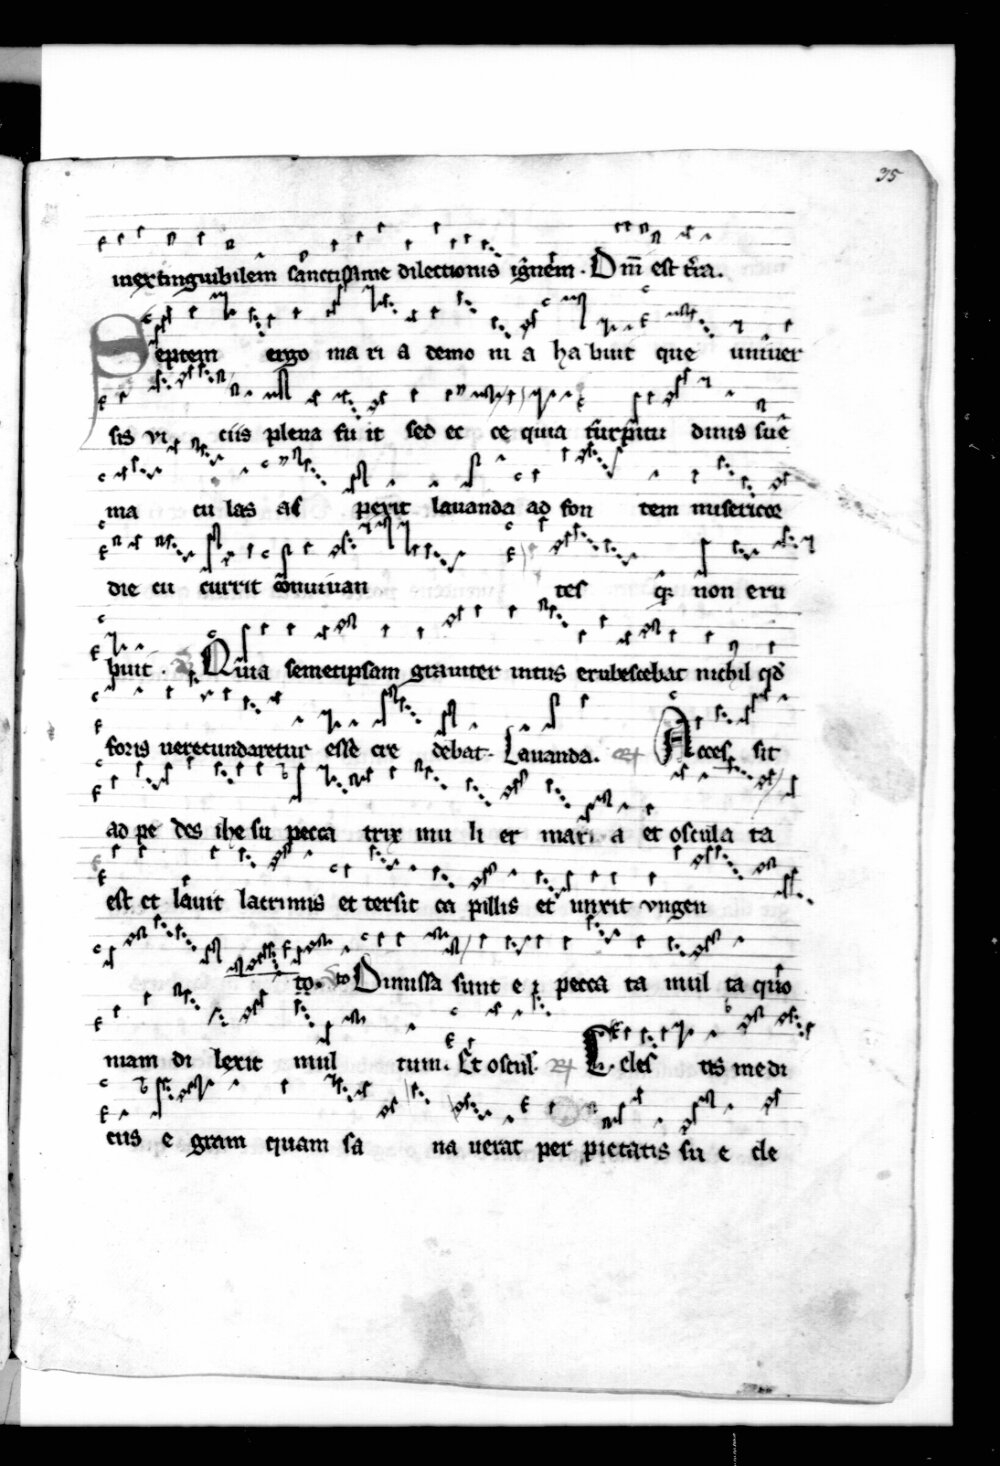 35
inextinguibilem sanctissime dilectionis ignem. Dm̄ est tr̄a.
Septem ergo ma ri a demo ni a ha buit que uniuer
sis vi ciis plena fu it sed ec ce quia turpitu dinis sue
ma cu las as pexit lauanda ad fon tem misericor
die cu currit conuiuan tes non eru
buit. Quia semetipsam grauiter intus erubescebat nichil qd̄
foris uerecundaretur esse cre debat. Lauanda. Acces sit
ad pe des ihe su pecca trix mu li er mari a et oscula ta
est et lauit lacrimis et tersit ca pillis et unxit vngen
to. Dimissa sunt e i pecca ta mul ta quo
niam di lexit mul tum. Et oscul. Celes tis medi
cus e gram quam sa na uerat per pietatis su e cle